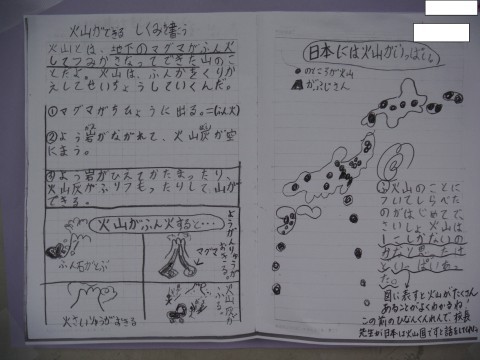 火山ができる しくみを習う
火山とは、地下のマグマがふん火
してつみかさなってできた山のこ
とだよ。火山は、ふんかをくりか
えしてせいちょうしていくんだ。
①マグマがちひょうに出る。=(ふん火)
②よう岩がながれて、火山灰が空
にまう。
③よう岩がひえてかたまったり、
火山灰がふりつもったりして山が
できる。
火山がふん火すると…
ふん石がとぶ
マグマ
火さいりゅうがおきる
火山灰が
ふる。
日本には火山がいっぱい
●のところが火山
▲がふじさん
火山のことに
ついてしらべた
のがはじめてで、
さいしょ火山は
1こしかないの
かなと思ったけ
どいっぱいあっ
た。
図に表すと火山がたくさん
あることがよくわかるね!
この前のひなんくんれんで、校長
先生が日本は火山国ですと話をしてくれた。